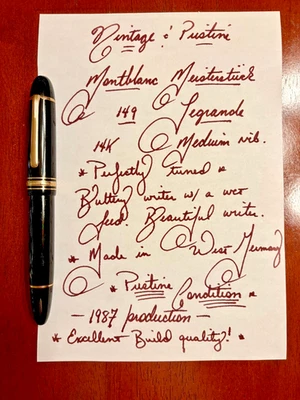 Vintage & Pristine
Montblanc Meisterstück
149 Legrande
14K Medium nib.
* Perfectly tuned *
Buttery writer w/ a wet
feed. Beautiful writer.
* Made in West Germany
* Pristine Condition *
- 1987 production -
* Excellent Build quality! *